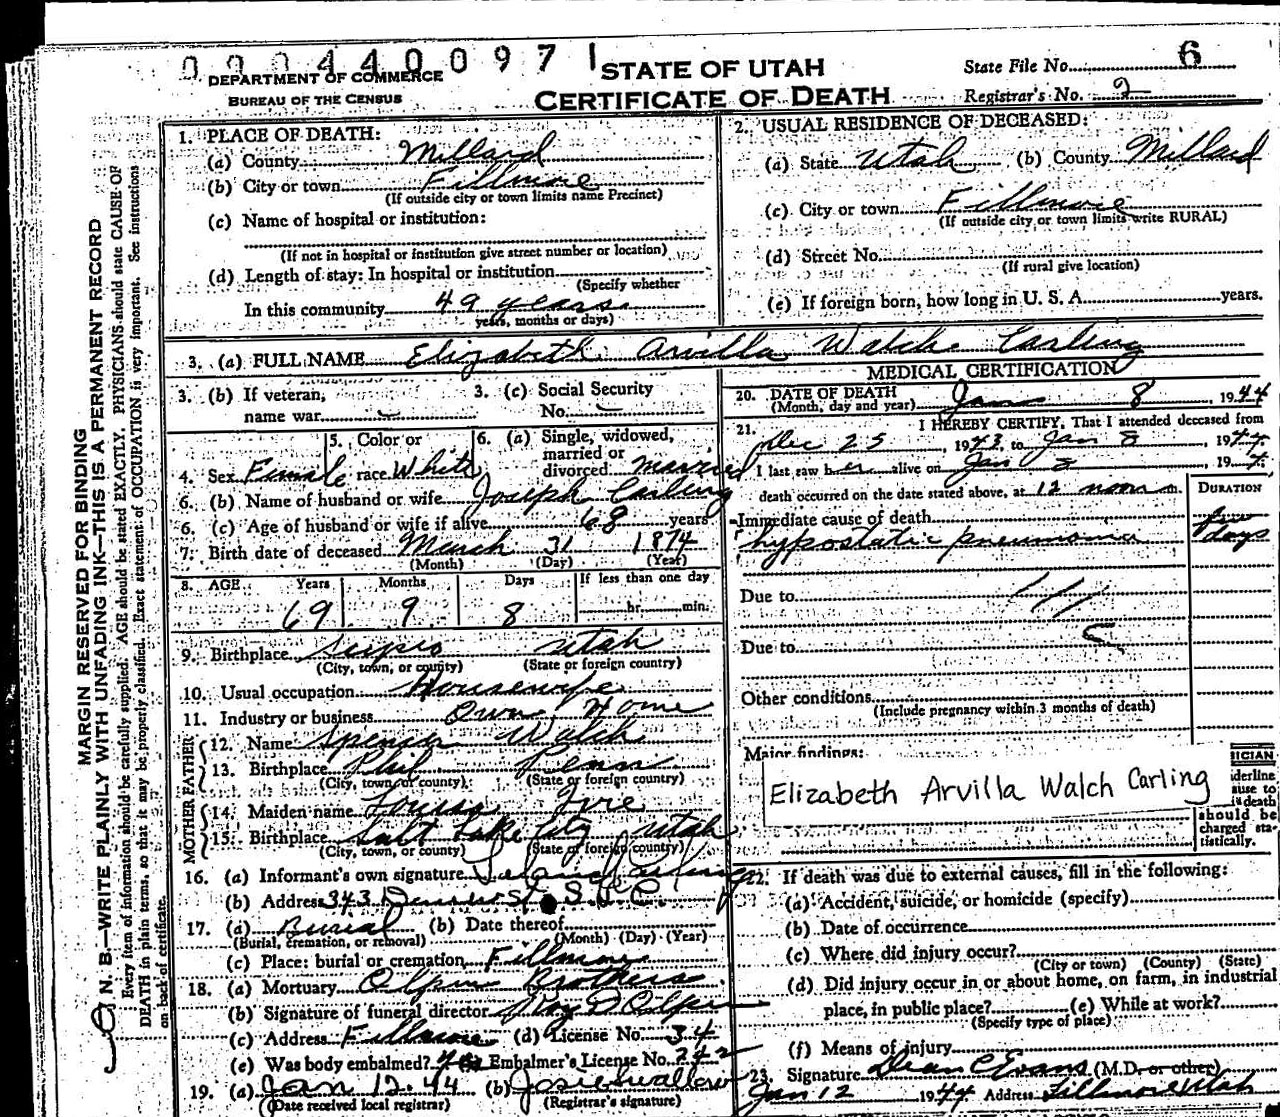 000440097 1
DEPARTMENT OF COMMERCE
BUREAU OF THE CENSUS
STATE OF UTAH
CERTIFICATE OF DEATH
State File No. 6
Registrar's No. 2
MARGIN RESERVED FOR BINDING
N. B.—WRITE PLAINLY WITH UNFADING INK—THIS IS A PERMANENT RECORD
Every item of information should be carefully supplied. AGE should be stated EXACTLY. PHYSICIANS should state CAUSE OF
DEATH in plain terms, so that it may be properly classified. Exact statement of OCCUPATION is very important. See instructions
on back of certificate.
1. PLACE OF DEATH:
(a) County Millard
(b) City or town Fillmore
(If outside city or town limits name Precinct)
(c) Name of hospital or institution:
(If not in hospital or institution give street number or location)
(d) Length of stay: In hospital or institution
(Specify whether
In this community 49 years
years, months or days)
2. USUAL RESIDENCE OF DECEASED:
(a) State Utah (b) County Millard
(c) City or town Fillmore
(If outside city or town limits write RURAL)
(d) Street No.
(If rural give location)
(e) If foreign born, how long in U. S. A. years.
3. (a) FULL NAME Elizabeth Arvilla Walch Carling
3. (b) If veteran,
name war
3. (c) Social Security
No.
4. Sex Female
5. Color or
race White
6. (a) Single, widowed,
married or
divorced married
6. (b) Name of husband or wife Joseph Carling
6. (c) Age of husband or wife if alive 68 years
7. Birth date of deceased March 31 1874
(Month) (Day) (Year)
8. AGE Years Months Days If less than one day
69 9 8 hr. min.
9. Birthplace Scipio Utah
(City, town, or county) (State or foreign country)
10. Usual occupation Housewife
11. Industry or business Own Home
FATHER
12. Name Spencer Walch
13. Birthplace Phil Penn
(City, town, or county) (State or foreign country)
MOTHER
14. Maiden name Louisa
15. Birthplace Salt Lake City Utah
(City, town, or county) (State or foreign country)
16. (a) Informant's own signature Leland Carling
(b) Address 343 Denver St. S L C.
17. (a) Burial (b) Date thereof
(Burial, cremation, or removal) (Month) (Day) (Year)
(c) Place: burial or cremation Fillmore
18. (a) Mortuary Olpin Brothers
(b) Signature of funeral director Roy D Olpin
(c) Address Fillmore (d) License No. 34
(e) Was body embalmed? yes Embalmer's License No. 242
19. (a) Jan 12-44 (b) Josie Wallace
(Date received local registrar) (Registrar's signature)
MEDICAL CERTIFICATION
20. DATE OF DEATH
(Month, day and year) Jan 8, 1944
21. I HEREBY CERTIFY, That I attended deceased from
Dec 25 1943, to Jan 8, 1944
I last saw her alive on Jan 8, 194
death occurred on the date stated above, at 12 noon m.
DURATION
Immediate cause of death
hypostatic pneumonia
few
days
Due to
Due to
Other conditions
(Include pregnancy within 3 months of death)
Major findings:
Elizabeth Arvilla Walch Carling
ICIAN
derline
ause to
death
should be
charged sta-
tistically.
22. If death was due to external causes, fill in the following:
(a) Accident, suicide, or homicide (specify)
(b) Date of occurrence
(c) Where did injury occur?
(City or town) (County) (State)
(d) Did injury occur in or about home, on farm, in industrial
place, in public place? (e) While at work?
(Specify type of place)
(f) Means of injury
23. Signature Dean C Evans (M.D. or other)
Jan 12 1944 Address Fillmore Utah